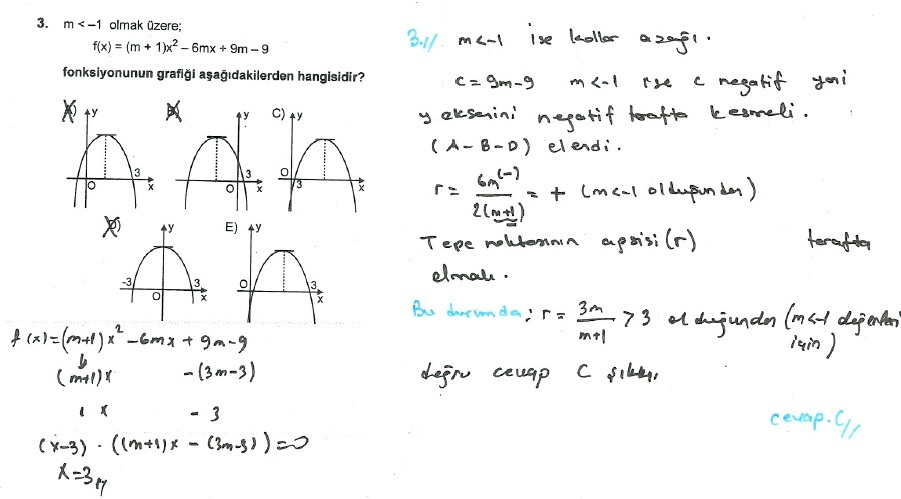 3. m < -1 olmak üzere;
f(x) = (m + 1)x² – 6mx + 9m – 9
fonksiyonunun grafiği aşağıdakilerden hangisidir?
A) y O 3 x
B) y O 3 x
C) y O 3 x
D) y -3 O 3 x
E) y O 3 x
f(x)=(m+1)x² -6mx + 9m-9
(m+1)x -(3m-3)
1 x - 3
(x-3) · ((m+1)x - (3m-3))=0
x=3
3.// m<-1 ise kollar aşağı.
c=9m-9 m<-1 ise c negatif yani
y eksenini negatif tarafta kesmeli.
(A-B-D) elendi.
r= 6m(-) / 2(m+1) = + (m<-1 olduğundan)
Tepe noktasının apsisi (r) tarafta
olmalı.
Bu durumda; r= 3m / m+1 > 3 olduğundan (m<-1 değerleri
için)
doğru cevap C şıkkı
cevap.C//